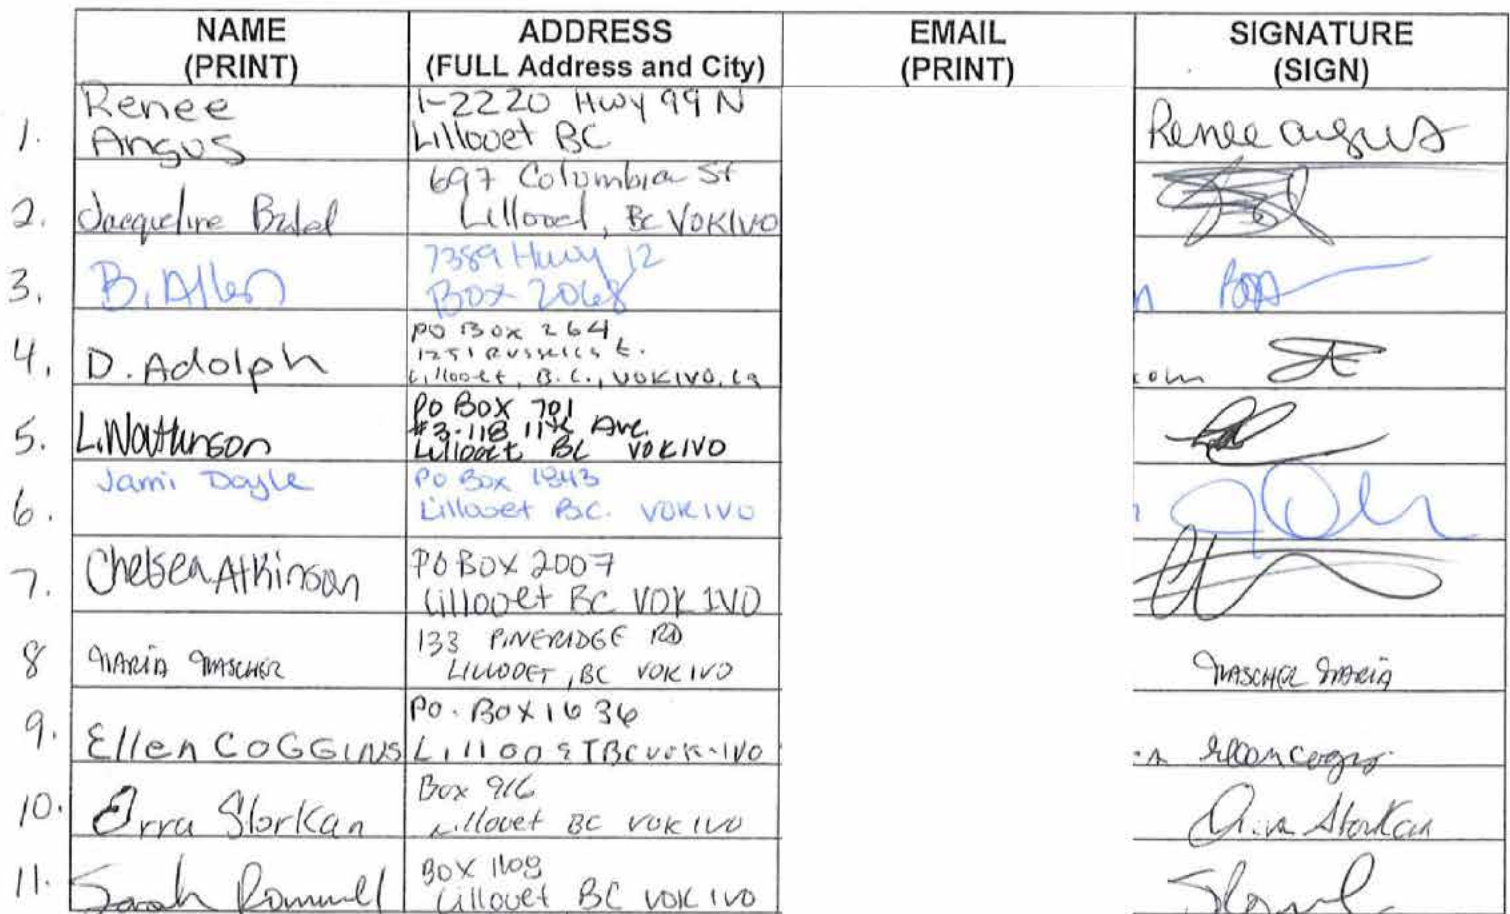 NAME (PRINT) ADDRESS (FULL Address and City) EMAIL (PRINT) SIGNATURE (SIGN)
1. Renee Angus 1-2220 Hwy 99 N Lillooet BC Renee Angus
2. Jacqueline 697 Columbia St Lillooet, BC V0K1V0
3. B. Allen 7389 Hwy 12 Box 2068
4. D. Adolph PO Box 264, 1251 Russell St. Lillooet, B.C., V0K1V0, Ca com
5. L. Watkinson PO Box 701 #3-118 11th Ave. Lillooet BC V0K1V0
6. Jami Doyle PO Box 1843 Lillooet BC. V0K1V0
7. Chelsea Atkinson PO BOX 2007 Lillooet BC V0K 1V0
8 MARIA MASCHER 133 PINERIDGE RD LILLOOET, BC V0K1V0 MASCHER MARIA
9. Ellen COGGINS PO. BOX 1636 LillooET BC V0K-1V0 Ellen Coggins
10. Storkan Box 916 Lillooet BC V0K1V0 Storkan
11. Sarah BOX 1108 Lillooet BC V0K1V0